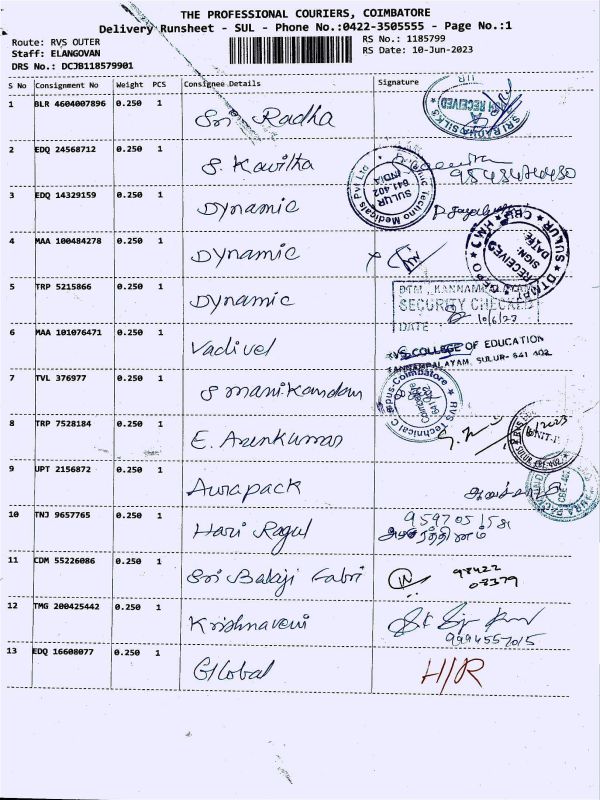 THE PROFESSIONAL COURIERS, COIMBATORE
Delivery Runsheet - SUL - Phone No.:0422-3505555 - Page No.:1
Route: RVS OUTER
Staff: ELANGOVAN
DRS No.: DCJB118579901
RS No.: 1185799
RS Date: 10-Jun-2023
S No Consignment No Weight PCS Consignee Details Signature
1 BLR 4604007896 0.250 1 Sri Radha
SRI RADHA SILKS
RECEIVED
2 EDQ 24568712 0.250 1 S. Kavitha
3 EDQ 14329159 0.250 1 Dynamic
Techno Medicals Pvt Ltd
SULUR
641 402
INDIA
4 MAA 100484278 0.250 1 Dynamic
RECEIVED
SIGN:
DATE:
5 TRP 5215866 0.250 1 Dynamic
SECURITY CHECKED
DATE 10/6/23
6 MAA 101076471 0.250 1 Vadivel
RVS COLLEGE OF EDUCATION
KANNAMPALAYAM, SULUR- 641 402
7 TVL 376977 0.250 1 S manikandan
RVS Technical Campus-Coimbatore
8 TRP 7528184 0.250 1 E. Arunkumar
9 UPT 2156872 0.250 1 Aurapack
10 TNJ 9657765 0.250 1 Hari Ragul
11 CDM 55226086 0.250 1 Sri Balaji Fabri
98422
08379
12 TMG 200425442 0.250 1 Krishnaveni
9994557015
13 EDQ 16608077 0.250 1 Global H/R